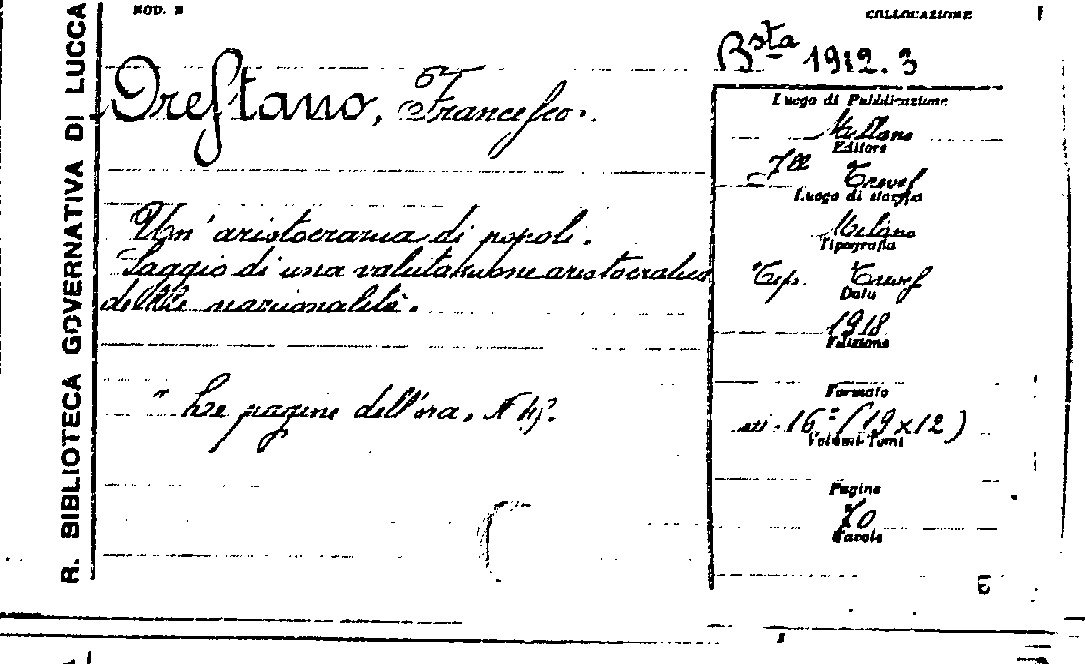 R. BIBLIOTECA GOVERNATIVA DI LUCCA
MOD. B
COLLOCAZIONE
Bsta 1912.3
Orestano, Francesco.
Un' aristocrazia di popoli.
Saggio di una valutazione aristocratica
delle nazionalità.
" Le pagine dell'ora, N 45.
Luogo di Pubblicazione
Milano
Editore
Flli Treves
Luogo di stampa
Milano
Tipografia
Tip. Treves
Data
1918
Edizione
Formato
in-16º (19x12)
Volumi-Tomi
Pagine
70
Tavole
E